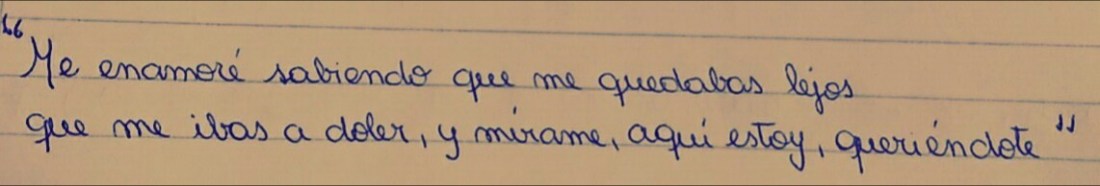 "Me enamoré sabiendo que me quedabas lejos
que me ibas a doler, y mírame, aquí estoy, queriéndote"